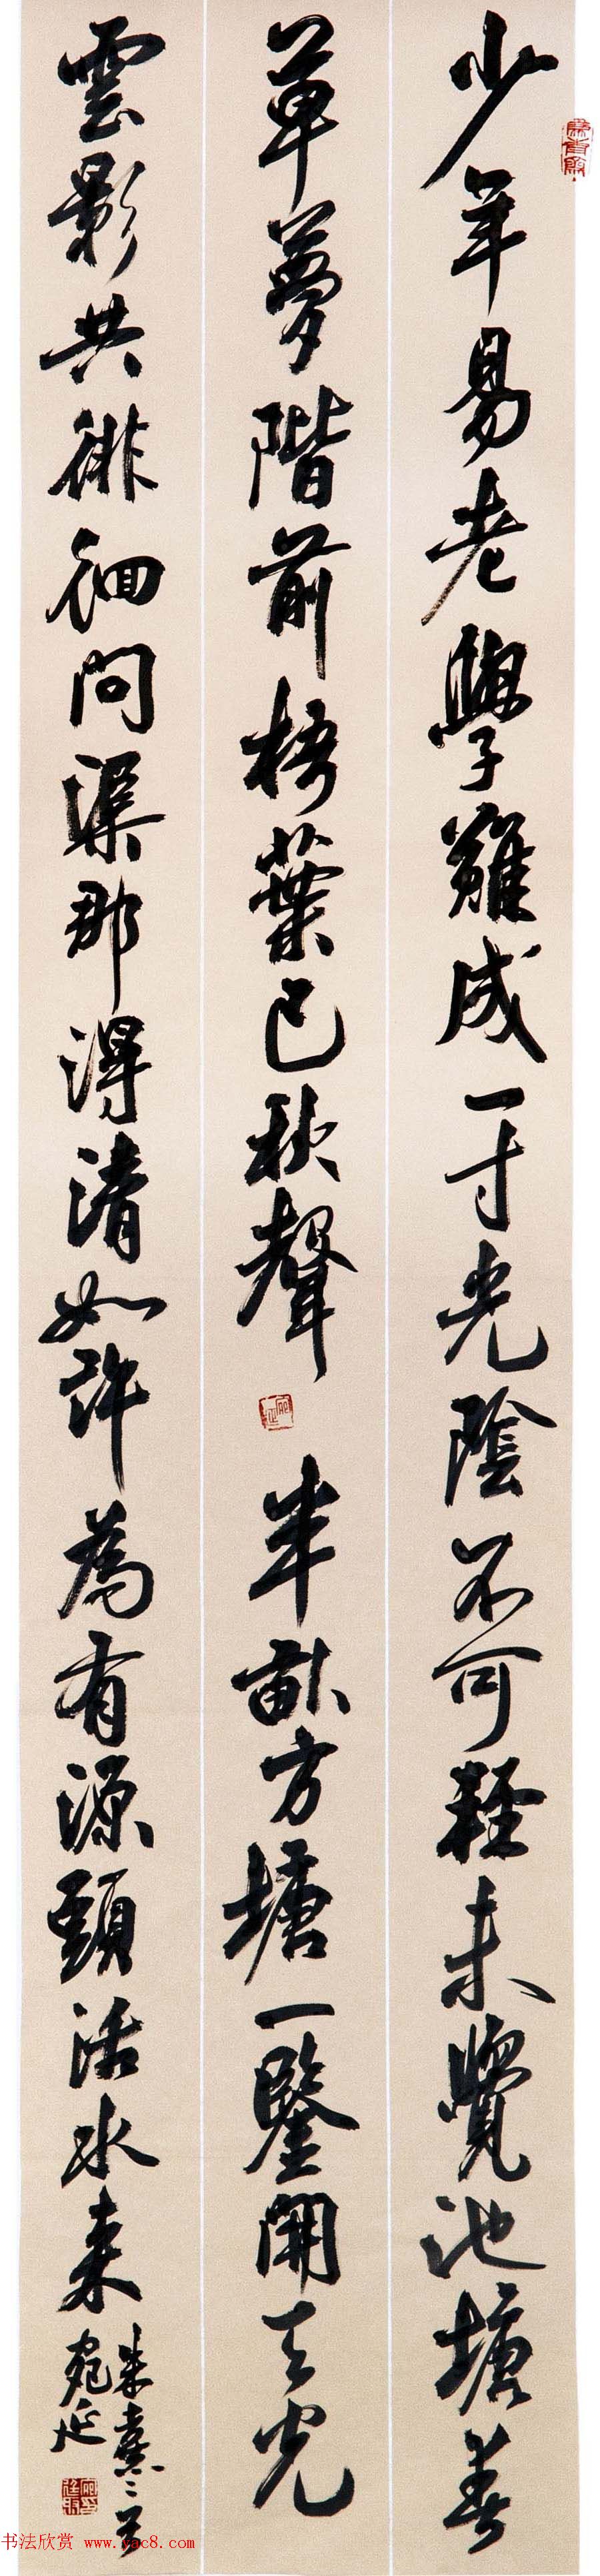 少年易老學難成一寸光陰不可輕未覺池塘春
草夢階前梧葉已秋聲 半畝方塘一鑒開天光
雲影共徘徊問渠那得清如許為有源頭活水来
朱熹二首
宛延
书法欣赏 www.yac8.com